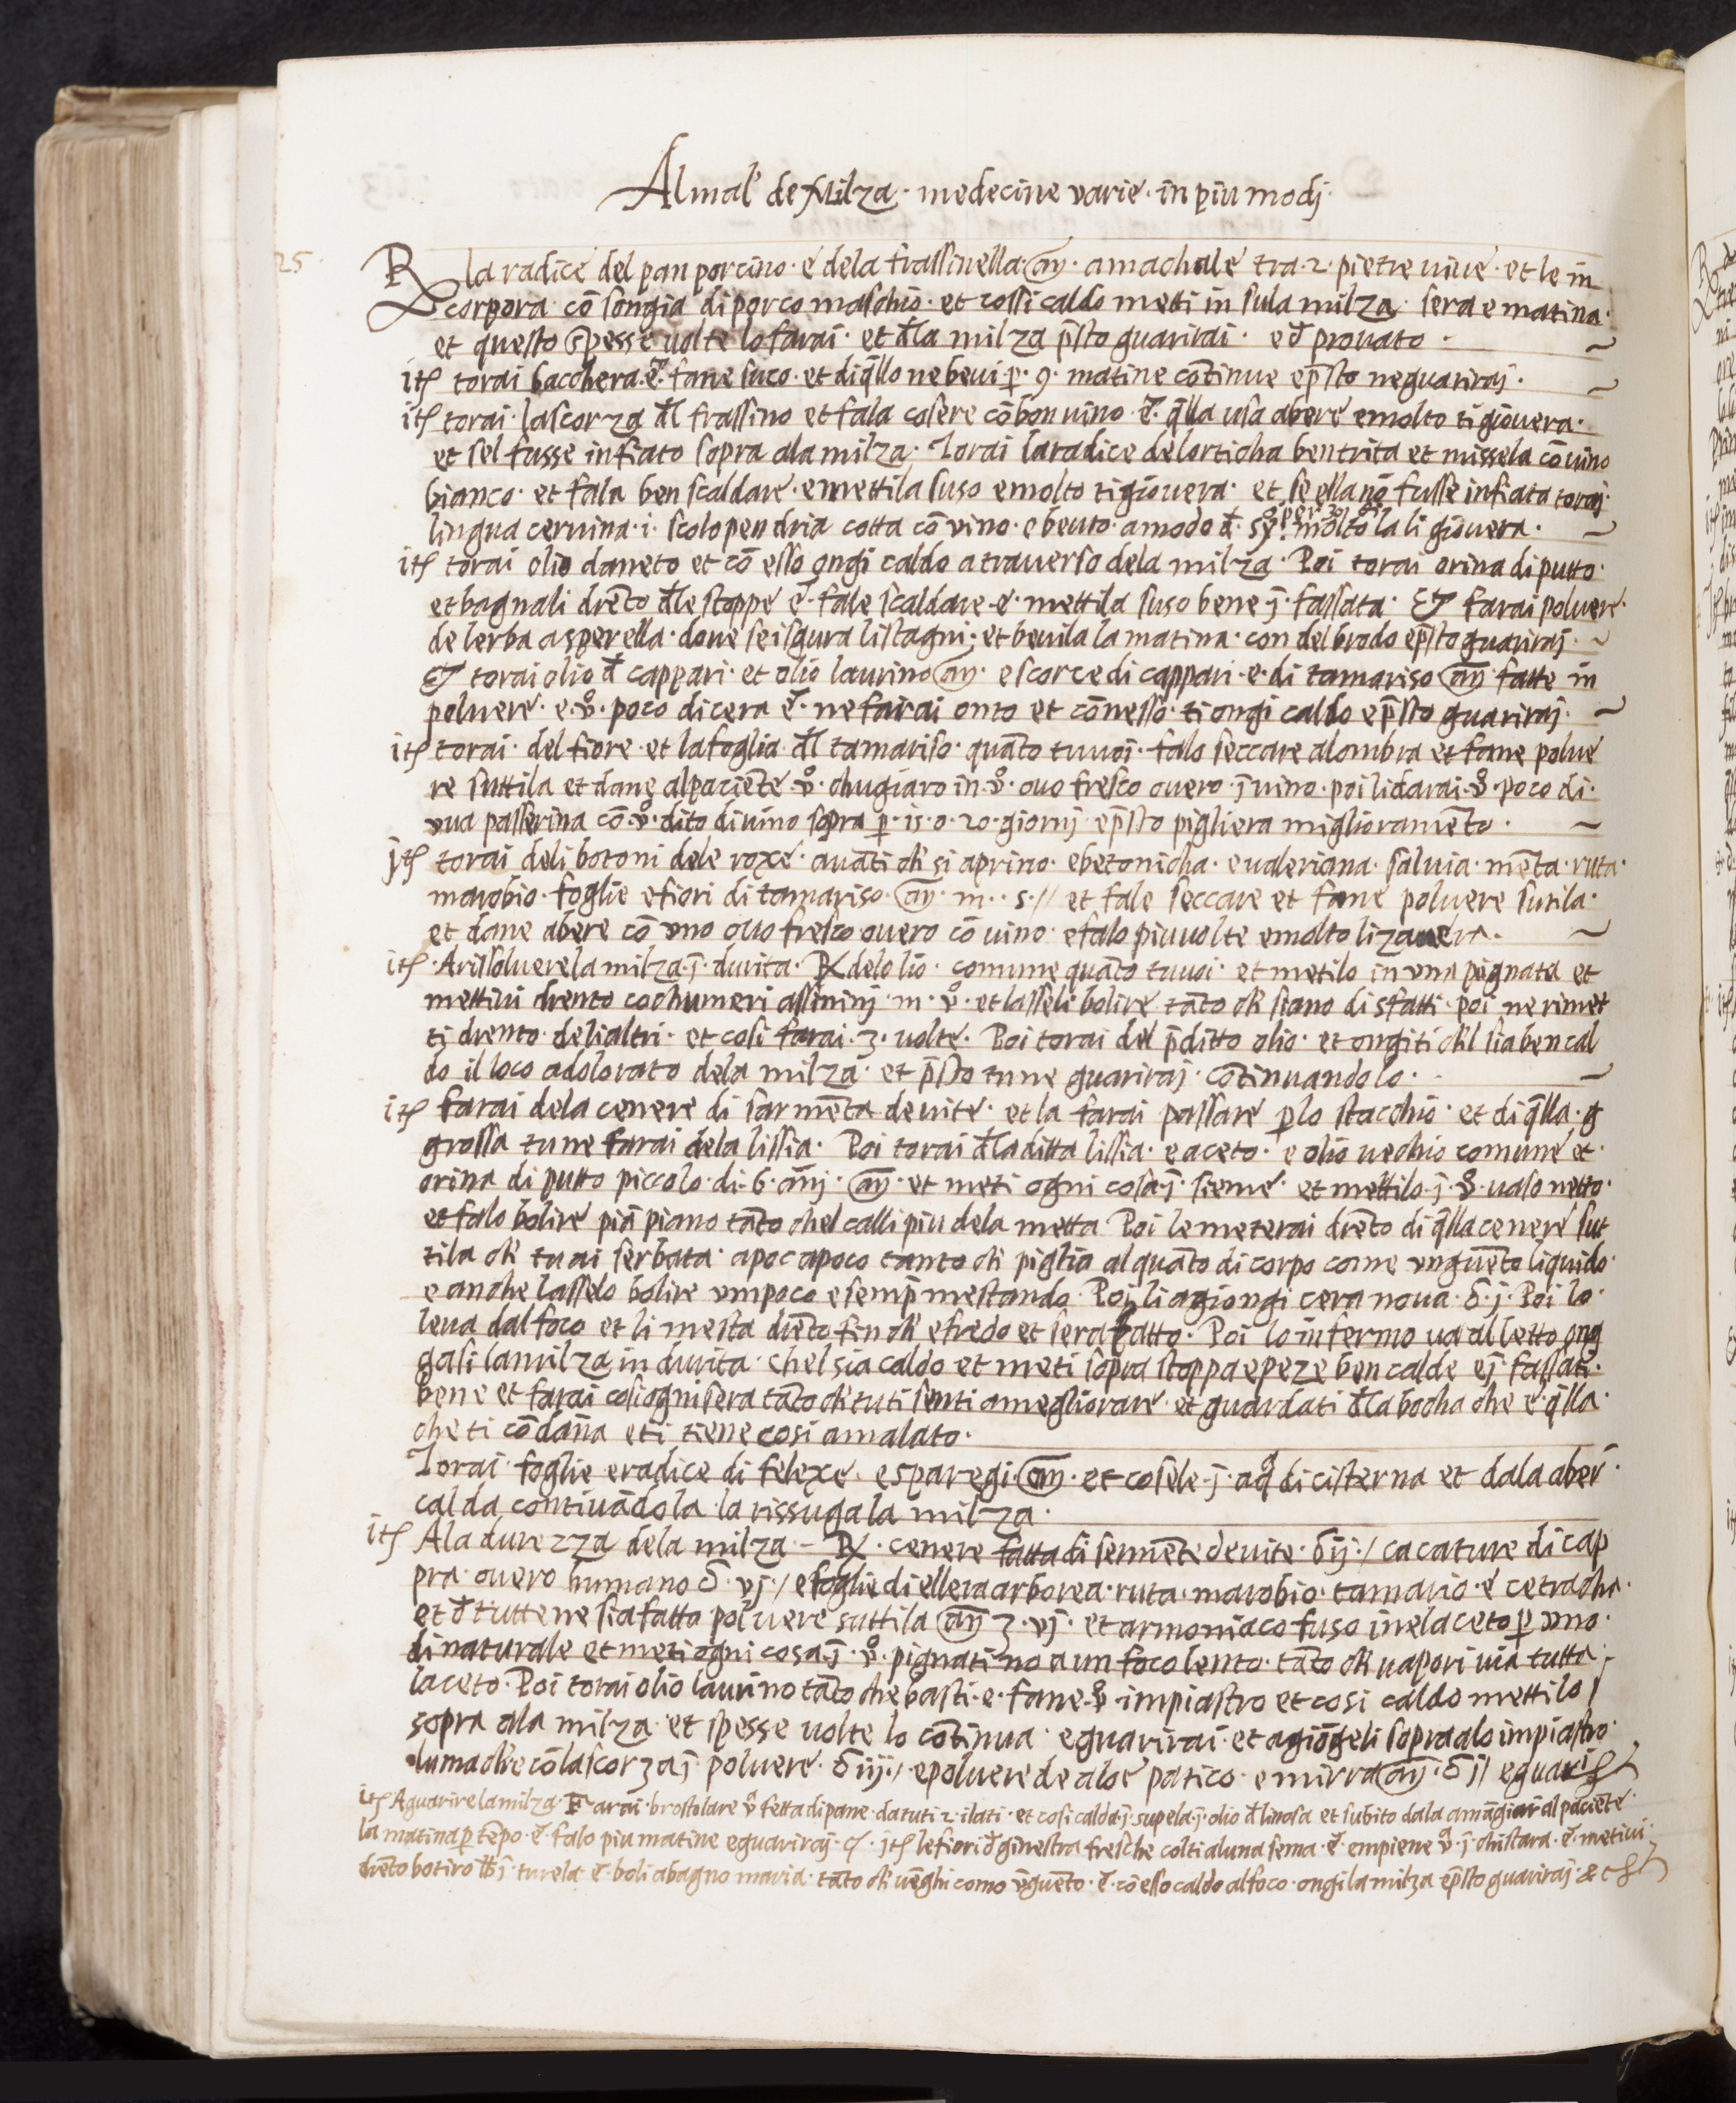 Al mal' de Milza · medecine varie · in piu modj ·
25 ·
℞ la radice del pan porcino · e dela frassinella · añ · amachale tra · 2 · pietre uiue · et le in
corpora cō songia di porco maschio · et cossi caldo metti in sula milza · sera e matina ·
et questo spesse uolte lo farai · et đla milza p̄sto guarirai · e đ prouato · ~
itē torai bacchera · e · fane suco · et di q̄llo ne beui p̱ · 9 · matine cōtinue e p̄sto ne guariraj · ~
itē torai · la scorza đl frassino et fala cosere cō bon uino · e · q̄lla usa abere e molto ti giouera ·
et sel fusse infiato sopra ala milza · Torai la radice delorticha ben trita et missela cō uino
bianco · et fala ben scaldare · e mettila suso e molto ti giouera · et se ella nō fusse infiata toraj ·
lingua ceruina · i · scolopendria cotta cō vino · e beuto · amodo đ · syp̱o · molto la li giouera · ~
itē torai olio daneto et cō esso ongi caldo a trauerso dela milza · Poi torai orina di putto ·
et bagnali drēto đle stoppe e · fale scaldare · e · mettila suso bene j̄ · fassata · Et farai poluere ·
de lerba asperella · doue se isgura li stagni · et beuila la matina · con del brodo e p̄sto guariraj · ~
Et torai olio đ cappari · et olio laurino añ · e scorce di cappari · e · di tamariso añ fatte in
poluere · e · v̊ · poco di cera e · ne farai onto et cō nesso · ti ongi caldo e p̄sto guariraj · ~
itē torai · del fiore · et la foglia đl tamariso · quāto tu uoj · falo seccare alombra et fane polue
re suttila et dane al paciēte · v̊ · chugiaro in · v̊ · ouo fresco ouero · j̄ uino · poi li darai · v̊ · poco di ·
vua passerina cō · v̊ · dito di uino sopra p̱ · 15 · o · 20 · giornj · e p̄sto pigliera miglioramēto · ~
jtē torai deli botoni dele roxe · auāti ch' si aprino · e betonicha · e ualeriana · saluia · mēta · ruta ·
marobio · foglie e fiori di tamariso · añ · m · · s · // et fale seccare et fane poluere sutila ·
et dane abere cō vno ouo fresco ouero cō uino · e falo piu uolte e molto li zauera · ~
itē · A rissoluere la milza · j̄ · durita · ℞ delolio · comune quāto tu uoi · et metilo in vna pignata et
mettiui drento cochumeri assininj · m · v̊ · et lasseli bolire tāto ch' siano disfatti · poi ne rimet
ti drento · deli altri · et cosi farai · 3 · uolte · Poi torai del p̄ditto olio · et ongiti ch'l sia ben cal
do il loco adolorato dela milza · et p̄sto tu ne guariraj · cōtinuandolo · ~
itē farai dela cenere di sarmēta de uite · et la farai passare p̱ lo stacchio · et di q̄lla · g
grossa tu ne farai dela lissia · Poi torai đla ditta lissia · e aceto · e olio uechio comune et ·
orina di putto piccolo · di · 6 · ānj · añ · et meti ogni cosa j̄ · sieme · et mettilo · j̄ · v̊ · uaso netto ·
et falo bolire piā piano tāto chel calli piu dela metta Poi le meterai drēto di q̄lla cenere sut
tila ch' tu ai serbata · apoc apoco tanto ch' piglia alquāto di corpo come vnguēto liquido ·
e anche lasselo bolire vmpoco e semp̱ mestando · Poj li agiongi cera noua · ℥ · j · Poi lo ·
leua dal foco et li mesta drēto fin ch' e fredo et sera fatto · Poi lo infermo ua al letto ong
gasi la milza in durita · chel sia caldo et meti sopra stoppa e peze ben calde e j̄ · fassati ·
bene et farai cosi ogni sera tāto ch' tu ti senti a megliorare · et guardati đla bocha che e · q̄lla ·
che ti cōdāna e ti tiene cosi amalato ·
Torai · foglie e radice di felexe · e sparegi · añ · et cosele · j̄ · aq̊ di cisterna et dala aber ·
calda continuādola · la rissuga la milza ·
itē Ala durezza dela milza – ℞ · cenere fatta di sermēte de uite · ℥ ij · / cacature di cap
pra · ouero humano ℥ · vj · / e foglie di ellera arborea · ruta · marobio · tamario · e cetracha ·
et đ tutte ne sia fatta poluere suttila añ ʒ · vj · et armoniaco fuso inelaceto p̱ vno ·
di naturale et meti ogni cosa j̄ · v̊ · pignatino a un foco lento · tāto ch' uapori uia tutta
laceto · Poi torai olio laurino tāto che basti · e · fane · v̊ · impiastro et cosi caldo mettilo
sopra ala milza · et spesse uolte lo cōtinua · e guarirai · et agiōgeli sopra alo impiastro
lumache cō la scorza j̄ poluere · ℥ iij · / e poluere de aloe patico · e mirra añ · ℥ j // e guari
itē A guarire la milza · Farai · brostolare v̊ fetta di pane · da tuti 2 · i lati · et cosi calda · j̄ · supela · j̄ · olio đ linosa et subito dala a māgiar al paciēte ·
la matina p̱ tēpo · e · falo piu matine e guariraj · jtē le fiori đ ginestra fresche colti a luna sema · e · empiene v̊ · j̄ ghistara · e · metiui ·
drēto botiro ℔ j · turela e · boli abagno maria · tāto ch' uēghi como v̄guēto · e · cō esso caldo al foco · ongi la milza e p̄sto guariraj · &c